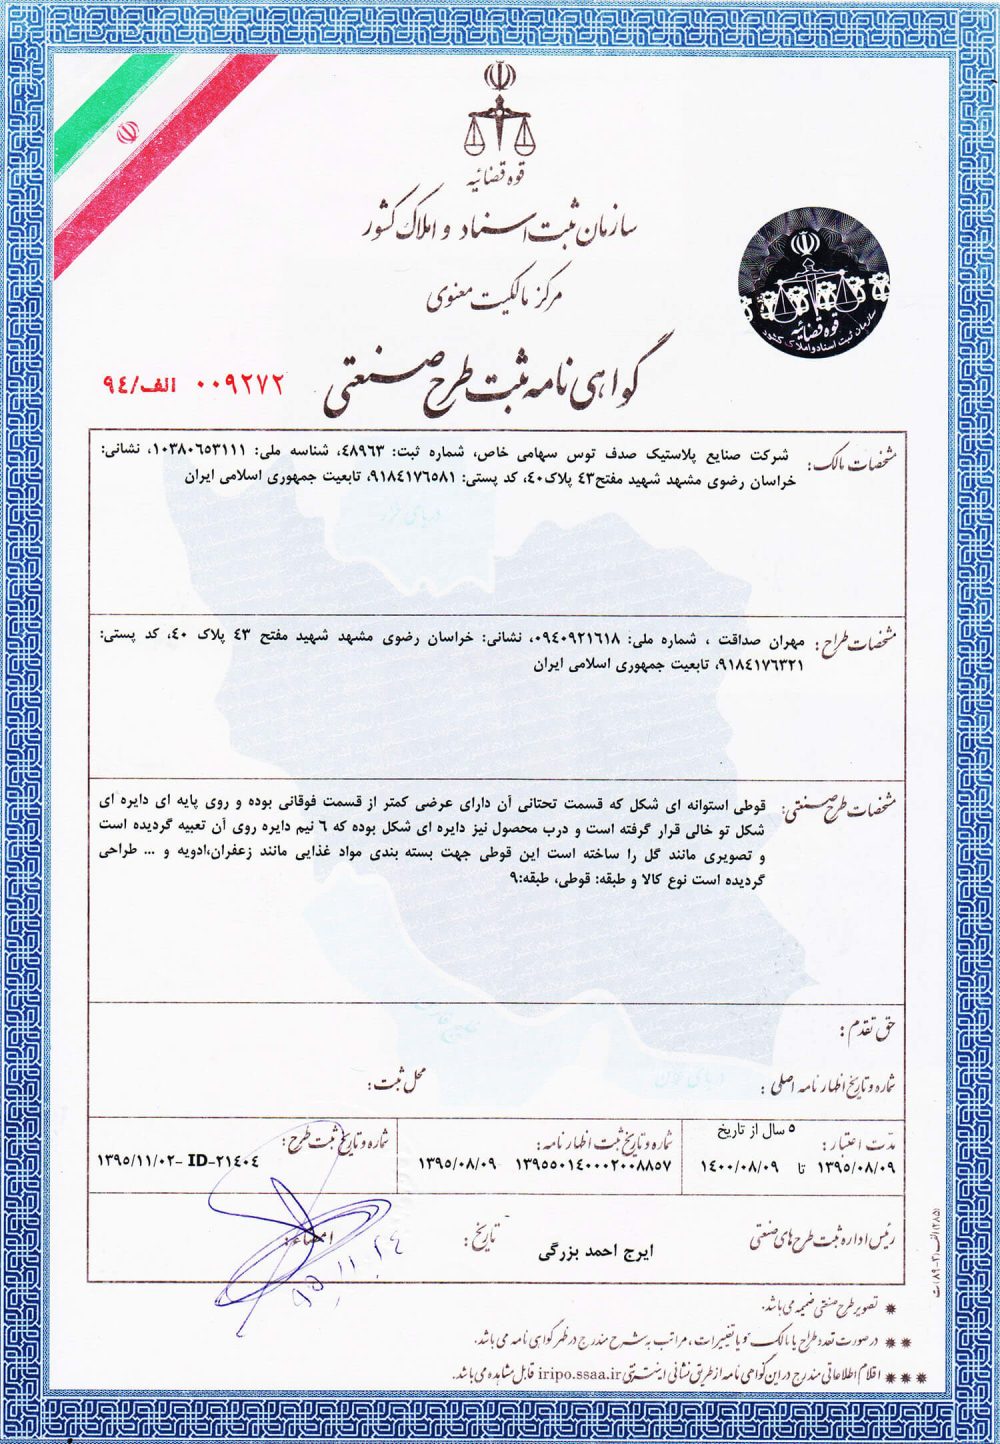 قوه قضائیه
سازمان ثبت اسناد و املاک کشور
مرکز مالکیت معنوی
قوه قضائیه
سازمان ثبت اسناد و املاک کشور
گواهی نامه ثبت طرح صنعتی
۰۰۹۲۷۲ الف/۹٤
مشخصات مالک: شرکت صنایع پلاستیک صدف توس سهامی خاص، شماره ثبت: ٤۸۹٦۳، شناسه ملی: ۱۰۳۸۰٦٥۳۱۱۱، نشانی:
خراسان رضوی مشهد شهید مفتح٤۳ پلاک٤۰، کد پستی: ۹۱۸٤۱۷٦٥۸۱، تابعیت جمهوری اسلامی ایران
دریای خزر
مشخصات طراح: مهران صداقت ، شماره ملی: ۰۹٤۰۹۲۱٦۱۸، نشانی: خراسان رضوی مشهد شهید مفتح ٤۳ پلاک ٤۰، کد پستی:
۹۱۸٤۱۷٦۳۲۱، تابعیت جمهوری اسلامی ایران
مشخصات طرح صنعتی: قوطی استوانه ای شکل که قسمت تحتانی آن دارای عرضی کمتر از قسمت فوقانی بوده و روی پایه ای دایره ای
شکل تو خالی قرار گرفته است و درب محصول نیز دایره ای شکل بوده که ٦ نیم دایره روی آن تعبیه گردیده است
و تصویری مانند گل را ساخته است این قوطی جهت بسته بندی مواد غذایی مانند زعفران،ادویه و ... طراحی
گردیده است نوع کالا و طبقه: قوطی، طبقه:۹
خلیج فارس
حق تقدم:
دریای عمان
شماره و تاریخ اظهارنامه اصلی: محل ثبت:
مدت اعتبار: ٥ سال از تاریخ
۱۳۹٥/۰۸/۰۹ تا ۱٤۰۰/۰۸/۰۹
شماره و تاریخ ثبت اظهارنامه:
۱۳۹٥٥۰۱٤۰۰۰۲۰۰۸۸٥۷ ۱۳۹٥/۰۸/۰۹
شماره و تاریخ ثبت طرح:
ID-۲۱٤۰٤ -۱۳۹٥/۱۱/۰۲
رئیس اداره ثبت طرح های صنعتی ایرج احمد بزرگی تاریخ: امضاء:
۹۵.۱۱.۲۴
* تصویر طرح صنعتی ضمیمه می باشد.
** در صورت تعدد طراح یا مالک و یا تغییرات، مراتب به شرح مندرج در ظهر گواهی نامه می باشد.
*** اقلام اطلاعاتی مندرج در این گواهی نامه از طریق نشانی اینترنتی iripo.ssaa.ir قابل مشاهده می باشد.